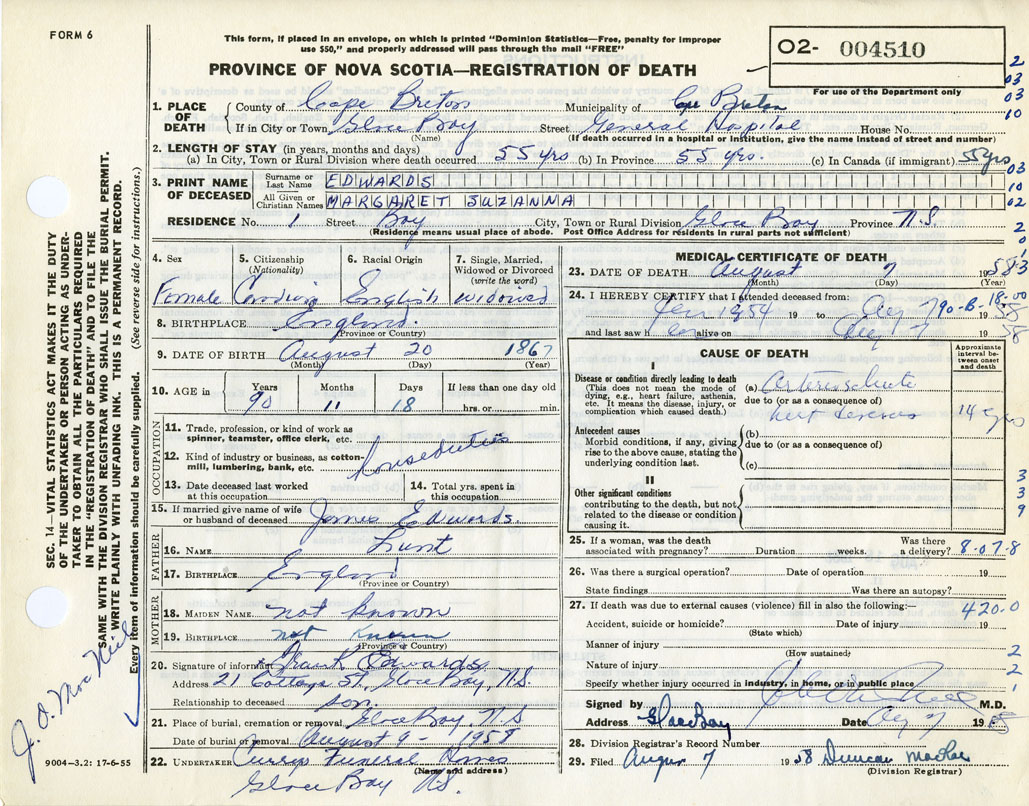 FORM 6
This form, if placed in an envelope, on which is printed "Dominion Statistics—Free, penalty for improper
use $50," and properly addressed will pass through the mail "FREE"
PROVINCE OF NOVA SCOTIA—REGISTRATION OF DEATH
O2- 004510
For use of the Department only
2
03
03
10
1. PLACE OF DEATH
County of Cape Breton Municipality of Cape Breton
If in City or Town Glace Bay Street General Hospital House No.
(Name) (If death occurred in a hospital or institution, give the name instead of street and number)
2. LENGTH OF STAY (in years, months and days)
(a) In City, Town or Rural Division where death occurred 55 yrs (b) In Province 55 yrs. (c) In Canada (if immigrant) 55 yrs
03
10
02
3. PRINT NAME OF DECEASED
Surname or Last Name EDWARDS
All Given or Christian Names MARGARET SUZANNA
RESIDENCE No. 1 Street Bay City, Town or Rural Division Glace Bay Province N.S.
(Residence means usual place of abode. Post Office Address for residents in rural parts not sufficient)
SEC. 14—VITAL STATISTICS ACT MAKES IT THE DUTY
OF THE UNDERTAKER OR PERSON ACTING AS UNDER-
TAKER TO OBTAIN ALL THE PARTICULARS REQUIRED
IN THE "REGISTRATION OF DEATH" AND TO FILE THE
SAME WITH THE DIVISION REGISTRAR WHO SHALL ISSUE THE BURIAL PERMIT.
WRITE PLAINLY WITH UNFADING INK. THIS IS A PERMANENT RECORD.
Every item of information should be carefully supplied. (See reverse side for instructions.)
4. Sex
Female
5. Citizenship
(Nationality)
Canadian
6. Racial Origin
English
7. Single, Married,
Widowed or Divorced
(write the word)
widowed
8. BIRTHPLACE England
(Province or Country)
9. DATE OF BIRTH August 20 1867
(Month) (Year)
10. AGE in
Years 90
Months 11
Days 18
If less than one day old
hrs. or min.
OCCUPATION
11. Trade, profession, or kind of work as
spinner, teamster, office clerk, etc.
12. Kind of industry or business, as cotton-
mill, lumbering, bank, etc.
Houseduties
13. Date deceased last worked
at this occupation
14. Total yrs. spent in
this occupation
15. If married give name of wife
or husband of deceased James Edwards.
FATHER
16. NAME Lunt
17. BIRTHPLACE England
(Province or Country)
MOTHER
18. MAIDEN NAME not known
19. BIRTHPLACE not Known
(Province or Country)
20. Signature of informant Frank Edwards
Address 21 Cottage St. Glace Bay, N.S.
Relationship to deceased son.
21. Place of burial, cremation or removal Glace Bay, N.S
Date of burial or removal August 9 - 1958
22. UNDERTAKER Curry Funeral Homes
(Name and address)
Glace Bay N.S.
J. O. Mac Neil
9004—3.2: 17-6-55
MEDICAL CERTIFICATE OF DEATH
23. DATE OF DEATH August 7 1958
(Month) (Day) (Year)
24. I HEREBY CERTIFY that I attended deceased from:
1954 19 to Aug 7 19 58
90-B-18-00
and last saw her alive on Aug 7 19 58
CAUSE OF DEATH
Approximate
interval be-
tween onset
and death
I
Disease or condition directly leading to death
(This does not mean the mode of
dying, e.g., heart failure, asthenia,
etc. It means the disease, injury, or
complication which caused death.)
(a)
due to (or as a consequence of)
14 yrs
Antecedent causes
Morbid conditions, if any, giving
rise to the above cause, stating the
underlying condition last.
(b)
due to (or as a consequence of)
(c)
II
Other significant conditions
contributing to the death, but not
related to the disease or condition
causing it.
3
3
9
25. If a woman, was the death
associated with pregnancy? Duration weeks. Was there a delivery?
8-07-8
26. Was there a surgical operation? Date of operation 19
State findings Was there an autopsy?
27. If death was due to external causes (violence) fill in also the following:—
420.0
Accident, suicide or homicide? Date of injury 19
(State which)
Manner of injury
(How sustained)
2
Nature of injury
2
Specify whether injury occurred in industry, in home, or in public place
1
Signed by M.D.
Address Glace Bay Date Aug 7 19 58
28. Division Registrar's Record Number
29. Filed August 7 1958 Duncan MacRae
(Division Registrar)